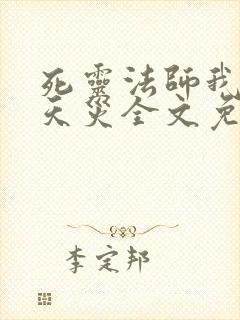 死靈法師我
天災全文免
李定邦